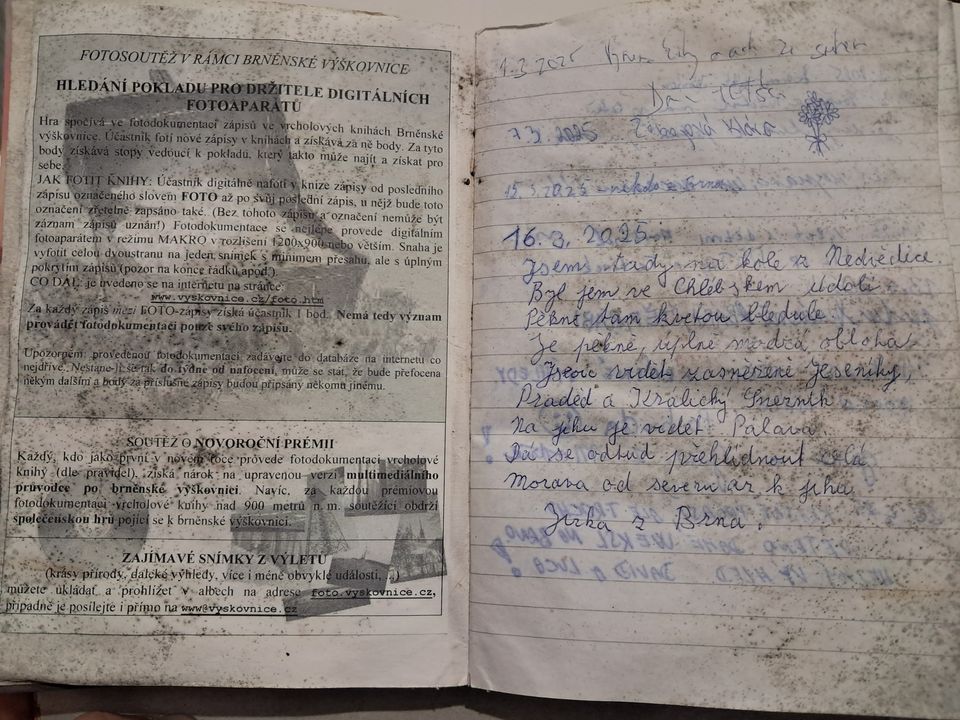 FOTOSOUTĚŽ V RÁMCI BRNĚNSKÉ VÝŠKOVNICE
HLEDÁNÍ POKLADU PRO DRŽITELE DIGITÁLNÍCH
FOTOAPARÁTŮ
Hra spočívá ve fotodokumentaci zápisů ve vrcholových knihách Brněnské
výškovnice. Účastník fotí nové zápisy v knihách a získává za ně body. Za tyto
body získává stopy vedoucí k pokladu, který takto může najít a získat pro
sebe.
JAK FOTIT KNIHY: Účastník digitálně nafotí v knize zápisy od posledního
zápisu označeného slovem FOTO až po svůj poslední zápis, u nějž bude toto
označení zřetelně zapsáno také. (Bez tohoto zápisu a označení nemůže být
záznam zápisů uznán!) Fotodokumentace se nejlépe provede digitálním
fotoaparátem v režimu MAKRO v rozlišení 1200x900 nebo větším. Snaha je
vyfotit celou dvoustranu na jeden snímek s minimem přesahu, ale s úplným
pokrytím zápisů (pozor na konce řádků apod.).
CO DÁL: je uvedeno se na internetu na stránce:
www.vyskovnice.cz/foto.htm
Za každý zápis mezi FOTO-zápisy získá účastník 1 bod. Nemá tedy význam
provádět fotodokumentaci pouze svého zápisu.
Upozornění: provedenou fotodokumentaci zadávejte do databáze na internetu co
nejdříve. Nestane-li se tak do týdne od nafocení, může se stát, že bude přefocena
někým dalším a body za příslušné zápisy budou připsány někomu jinému.
SOUTĚŽ O NOVOROČNÍ PRÉMII
Každý, kdo jako první v novém roce provede fotodokumentaci vrcholové
knihy (dle pravidel), získá nárok na upravenou verzi multimediálního
průvodce po brněnské výškovnici. Navíc, za každou prémiovou
fotodokumentaci vrcholové knihy nad 900 metrů n. m. soutěžící obdrží
společenskou hru pojící se k brněnské výškovnici.
ZAJÍMAVÉ SNÍMKY Z VÝLETŮ
(krásy přírody, daleké výhledy, více i méně obvyklé události, ...)
můžete ukládat a prohlížet v albech na adrese foto.vyskovnice.cz,
případně je posílejte i přímo na www@vyskovnice.cz
1.3.2025
7.3.2025 Klára
15.3.2025 - někdo z Brna
16.3.2025
Jsem tady na kole z Nedvědice
Byl jsem ve Chlébském údolí
Pěkně tam kvetou bledule
Je pěkně, úplně modrá obloha
Jsou vidět zasněžené Jeseníky,
Praděd a Králický Sněžník
Na jihu je vidět Pálava
Dá se odtud přehlídnout celá
Morava od severu až k jihu
Jirka z Brna.